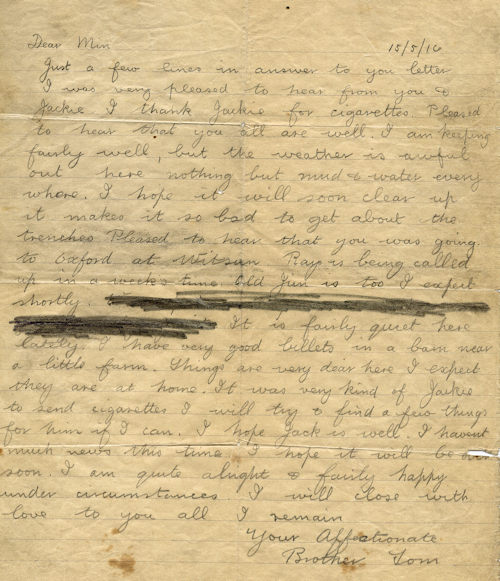 Dear Min 15/5/16
Just a few lines in answer to you letter
I was very pleased to hear from you &
Jackie I thank Jackie for cigarettes. Pleased
to hear that you all are well. I am keeping
fairly well, but the weather is awful
out here nothing but mud & water every
where. I hope it will soon clear up
it makes it so bad to get about the
trenches Pleased to hear that you was going
to Oxford at Witsun Ray is being called
up in a week's time Old Jim is too I expect
shortly.
It is fairly quiet here
lately. I have very good billets in a barn near
a little farm. Things are very dear here I expect
they are at home. It was very kind of Jackie
to send cigarettes I will try & find a few things
for him if I can. I hope Jack is well. I havent
much news this time I hope it will be over
soon. I am quite alright & fairly happy
under circumstances I will close with
love to you all I remain
Your Affectionate
Brother Tom